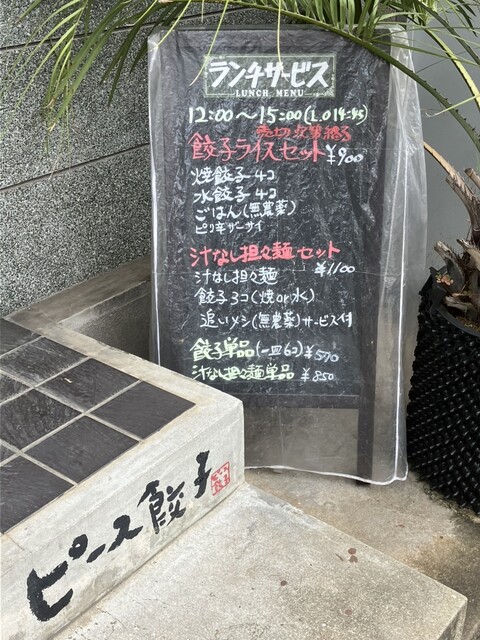 ランチサービス
LUNCH MENU
12:00〜15:00(L.O 14:45)
売切次第終了
餃子ライスセット ¥900
焼餃子4コ
水餃子4コ
ごはん(無農薬)
ピリ辛ザーサイ
汁なし担々麺セット
¥1100
汁なし担々麺
餃子3コ(焼or水)
追いメシ(無農薬)サービス付
餃子単品(一皿6コ)¥570
汁なし担々麺単品 ¥850
ピース餃子